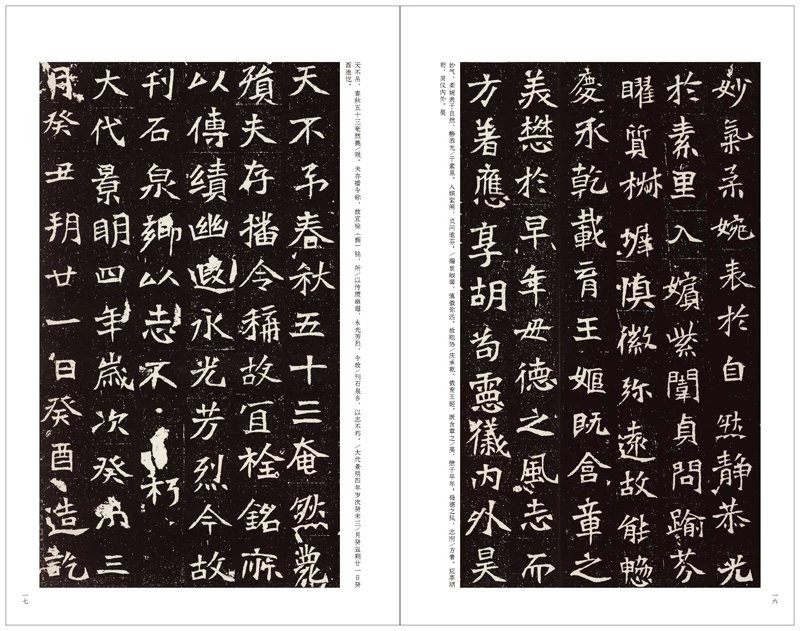 妙氣柔婉表於自然靜恭光
於素里入嬪紫闈貞問踰芬
曜質椒墀慎徽弥遠故能
慶承乾載育王姬既含章之
美懋於早年毋德之風志而
方著應享胡苟靈儀內外昊
妙气，柔婉表于自然，静恭光/于素里。入嫔紫闱，贞问逾芬，/曜质椒墀，慎徽弥远。故能协/庆承乾，载育王姬。既含章之/美，懋于早年，母德之风，志而/方著。应享胡
苟，灵仪内外。昊
一六
天不弔春秋五十三奄然薨
殞夫存播令稱故宜栓銘所
以傳績幽遐永光芳烈今故
刊石泉鄉以志不朽
大代景明四年歲次癸未三
月癸丑朔廿一日癸酉造訖
天不吊，春秋五十三奄然薨/殒。夫存播令称，故宜栓（铨）铭，所/以传绩幽遐，永光芳烈。今故/刊石泉乡，以志不朽。/大代景明四年岁次癸未三/月癸丑朔廿一日癸
酉造讫。
一七